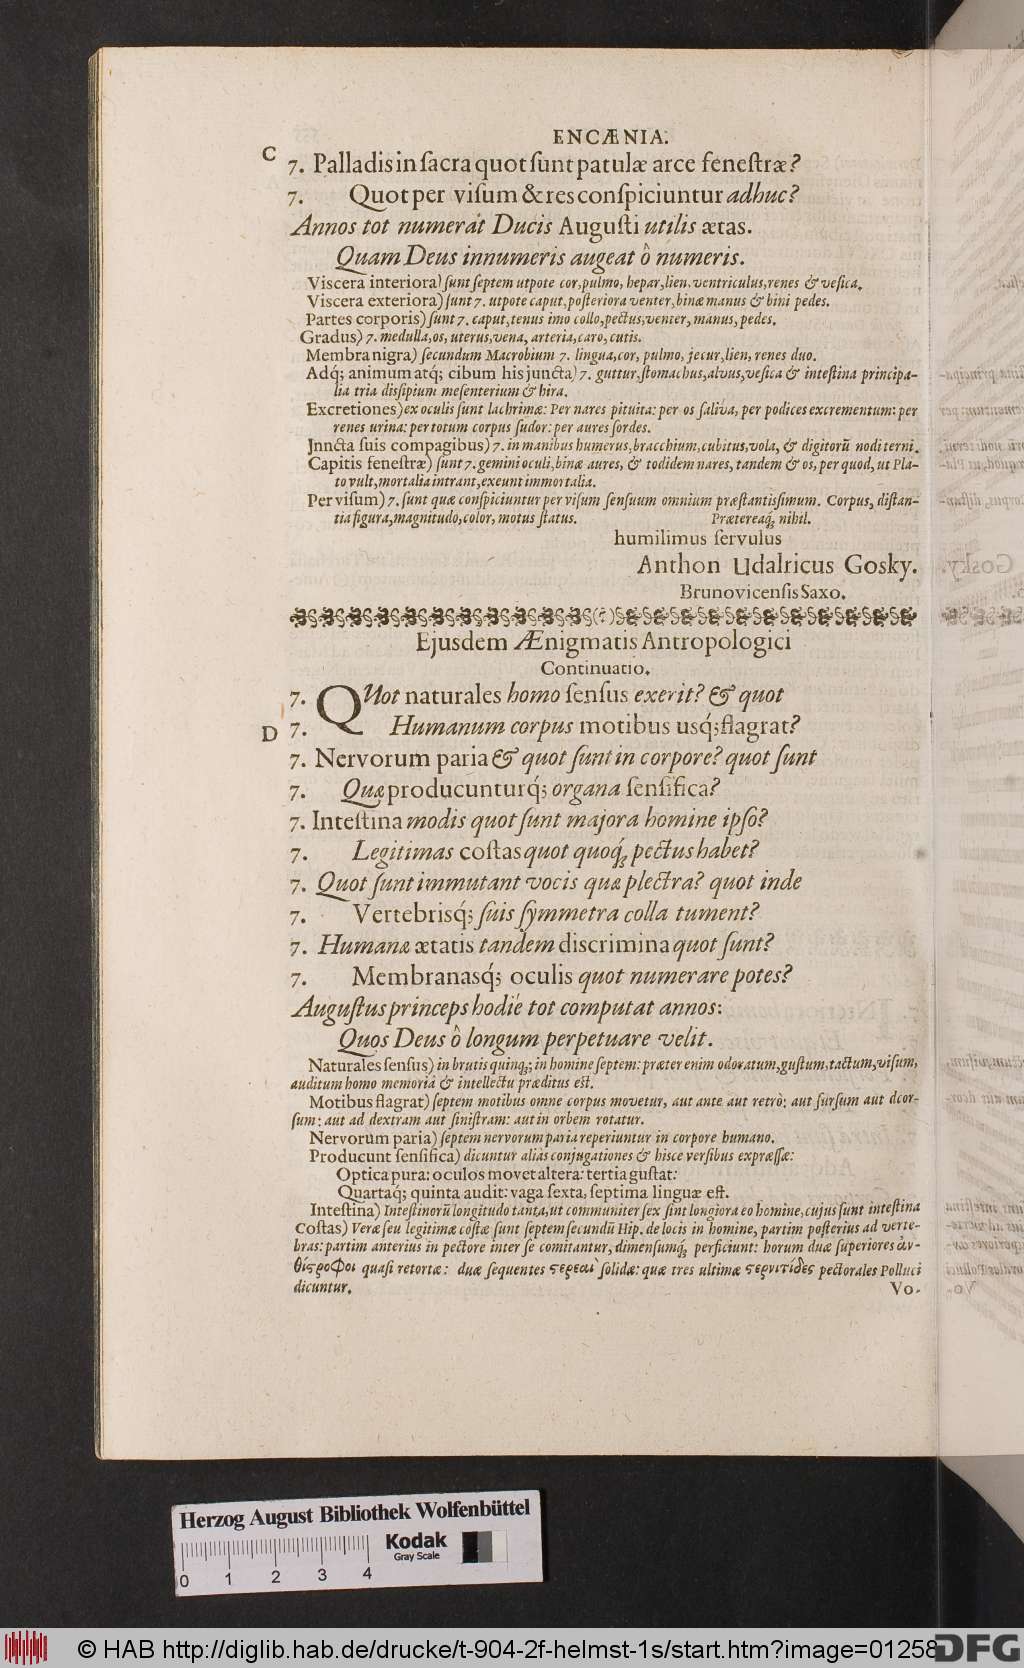 ENCÆNIA.
C
7. Palladis in ſacra quot ſunt patulæ arce feneſtræ?
7. Quot per viſum & res conſpiciuntur adhuc?
Annos tot numerat Ducis Auguſti utilis ætas.
Quam Deus innumeris augeat ô numeris.
Viscera interiora) ſunt ſeptem utpote cor, pulmo, hepar, lien, ventriculus, renes & veſica.
Viscera exteriora) ſunt 7. utpote caput, poſteriora venter, binæ manus & bini pedes.
Partes corporis) ſunt 7. caput, tenus imo collo, pectus, venter, manus, pedes.
Gradus) 7. medulla, os, uterus, vena, arteria, caro, cutis.
Membra nigra) ſecundum Macrobium 7. lingua, cor, pulmo, jecur, lien, renes duo.
Adq; animum atq; cibum his juncta) 7. guttur, ſtomachus, alvus, veſica & inteſtina principa-
lia tria diſſipium meſenterium & hira.
Excretiones) ex oculis ſunt lachrimæ: Per nares pituita: per os ſaliva, per podices excrementum: per
renes urina: per totum corpus ſudor: per aures ſordes.
Jnncta ſuis compagibus) 7. in manibus humerus, bracchium, cubitus, vola, & digitorũ nodi terni.
Capitis feneſtræ) ſunt 7. gemini oculi, binæ aures, & todidem nares, tandem & os, per quod, ut Pla-
to vult, mortalia intrant, exeunt immortalia.
Per viſum) 7. ſunt quæ conſpiciuntur per viſum ſenſuum omnium præſtantiſſimum. Corpus, diſtan-
tia figura, magnitudo, color, motus ſtatus. Prætereaq́; nihil.
humilimus ſervulus
Anthon Udalricus Gosky.
Brunovicenſis Saxo.
(?)
Ejusdem Ænigmatis Antropologici
Continuatio.
7. QUot naturales homo ſenſus exerit? & quot
D
7. Humanum corpus motibus usq́; flagrat?
7. Nervorum paria & quot ſunt in corpore? quot ſunt
7. Quæ producunturq́; organa ſenſifica?
7. Inteſtina modis quot ſunt majora homine ipſo?
7. Legitimas coſtas quot quoq́; pectus habet?
7. Quot ſunt immutant vocis quæ plectra? quot inde
7. Vertebrisq́; ſuis ſymmetra colla tument?
7. Humanæ ætatis tandem discrimina quot ſunt?
7. Membranasq́; oculis quot numerare potes?
Auguſtus princeps hodie tot computat annos:
Quos Deus ô longum perpetuare velit.
Naturales ſenſus) in brutis quinq;; in homine ſeptem: præter enim odoratum, guſtum, tactum, viſum,
auditum homo memoriâ & intellectu præditus eſt.
Motibus flagrat) ſeptem motibus omne corpus movetur, aut ante aut retrò: aut ſurſum aut deor-
ſum: aut ad dextram aut ſiniſtram: aut in orbem rotatur.
Nervorum paria) ſeptem nervorum paria reperiuntur in corpore humano.
Producunt ſenſifica) dicuntur aliàs conjugationes & hisce verſibus expræſſæ:
Optica pura: oculos movet altera: tertia guſtat:
Quartaq́; quinta audit: vaga ſexta, ſeptima linguæ eſt.
Inteſtina) Inteſtinorũ longitudo tanta, ut communiter ſex ſint longiora eo homine, cujus ſunt inteſtina
Coſtas) Veræ ſeu legitimæ coſtæ ſunt ſeptem ſecundũ Hip. de locis in homine, partim poſterius ad verte-
bras: partim anterius in pectore inter ſe comitantur, dimenſumq́; perficiunt: horum duæ ſuperiores ἀν-
θίςροφοι quaſi retortæ: duæ ſequentes ςερεαὶ ſolidæ: quæ tres ultimæ ςερνιτίδες pectorales Polluci
dicuntur.
Vo-
Herzog August Bibliothek Wolfenbüttel
Kodak
Gray Scale
0 1 2 3 4
© HAB http://diglib.hab.de/drucke/t-904-2f-helmst-1s/start.htm?image=01258
DFG